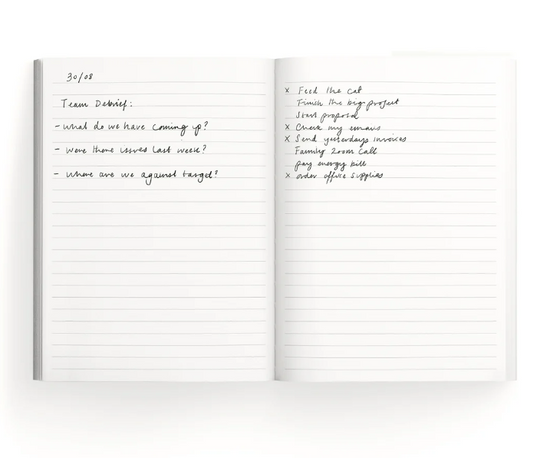 30/08
Team Debrief:
- what do we have coming up?
- were there issues last week?
- where are we against target?
x Feed the cat
Finish the big project
Start proposal
x Check my emails
x Send yesterdays invoices
Family zoom call
pay energy bill
x order office supplies